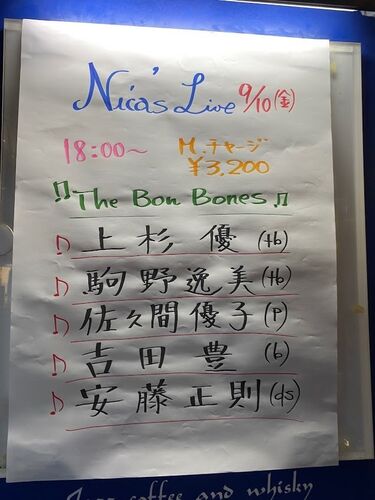 Nica's Live 9/10(金)
18:00〜 M.チャージ
¥3,200
♫ The Bon Bones ♫
♪ 上杉 優 (tb)
♪ 駒野逸美 (tb)
♪ 佐久間優子 (p)
♪ 吉田 豊 (b)
♪ 安藤正則 (ds)
Jazz coffee and whisky